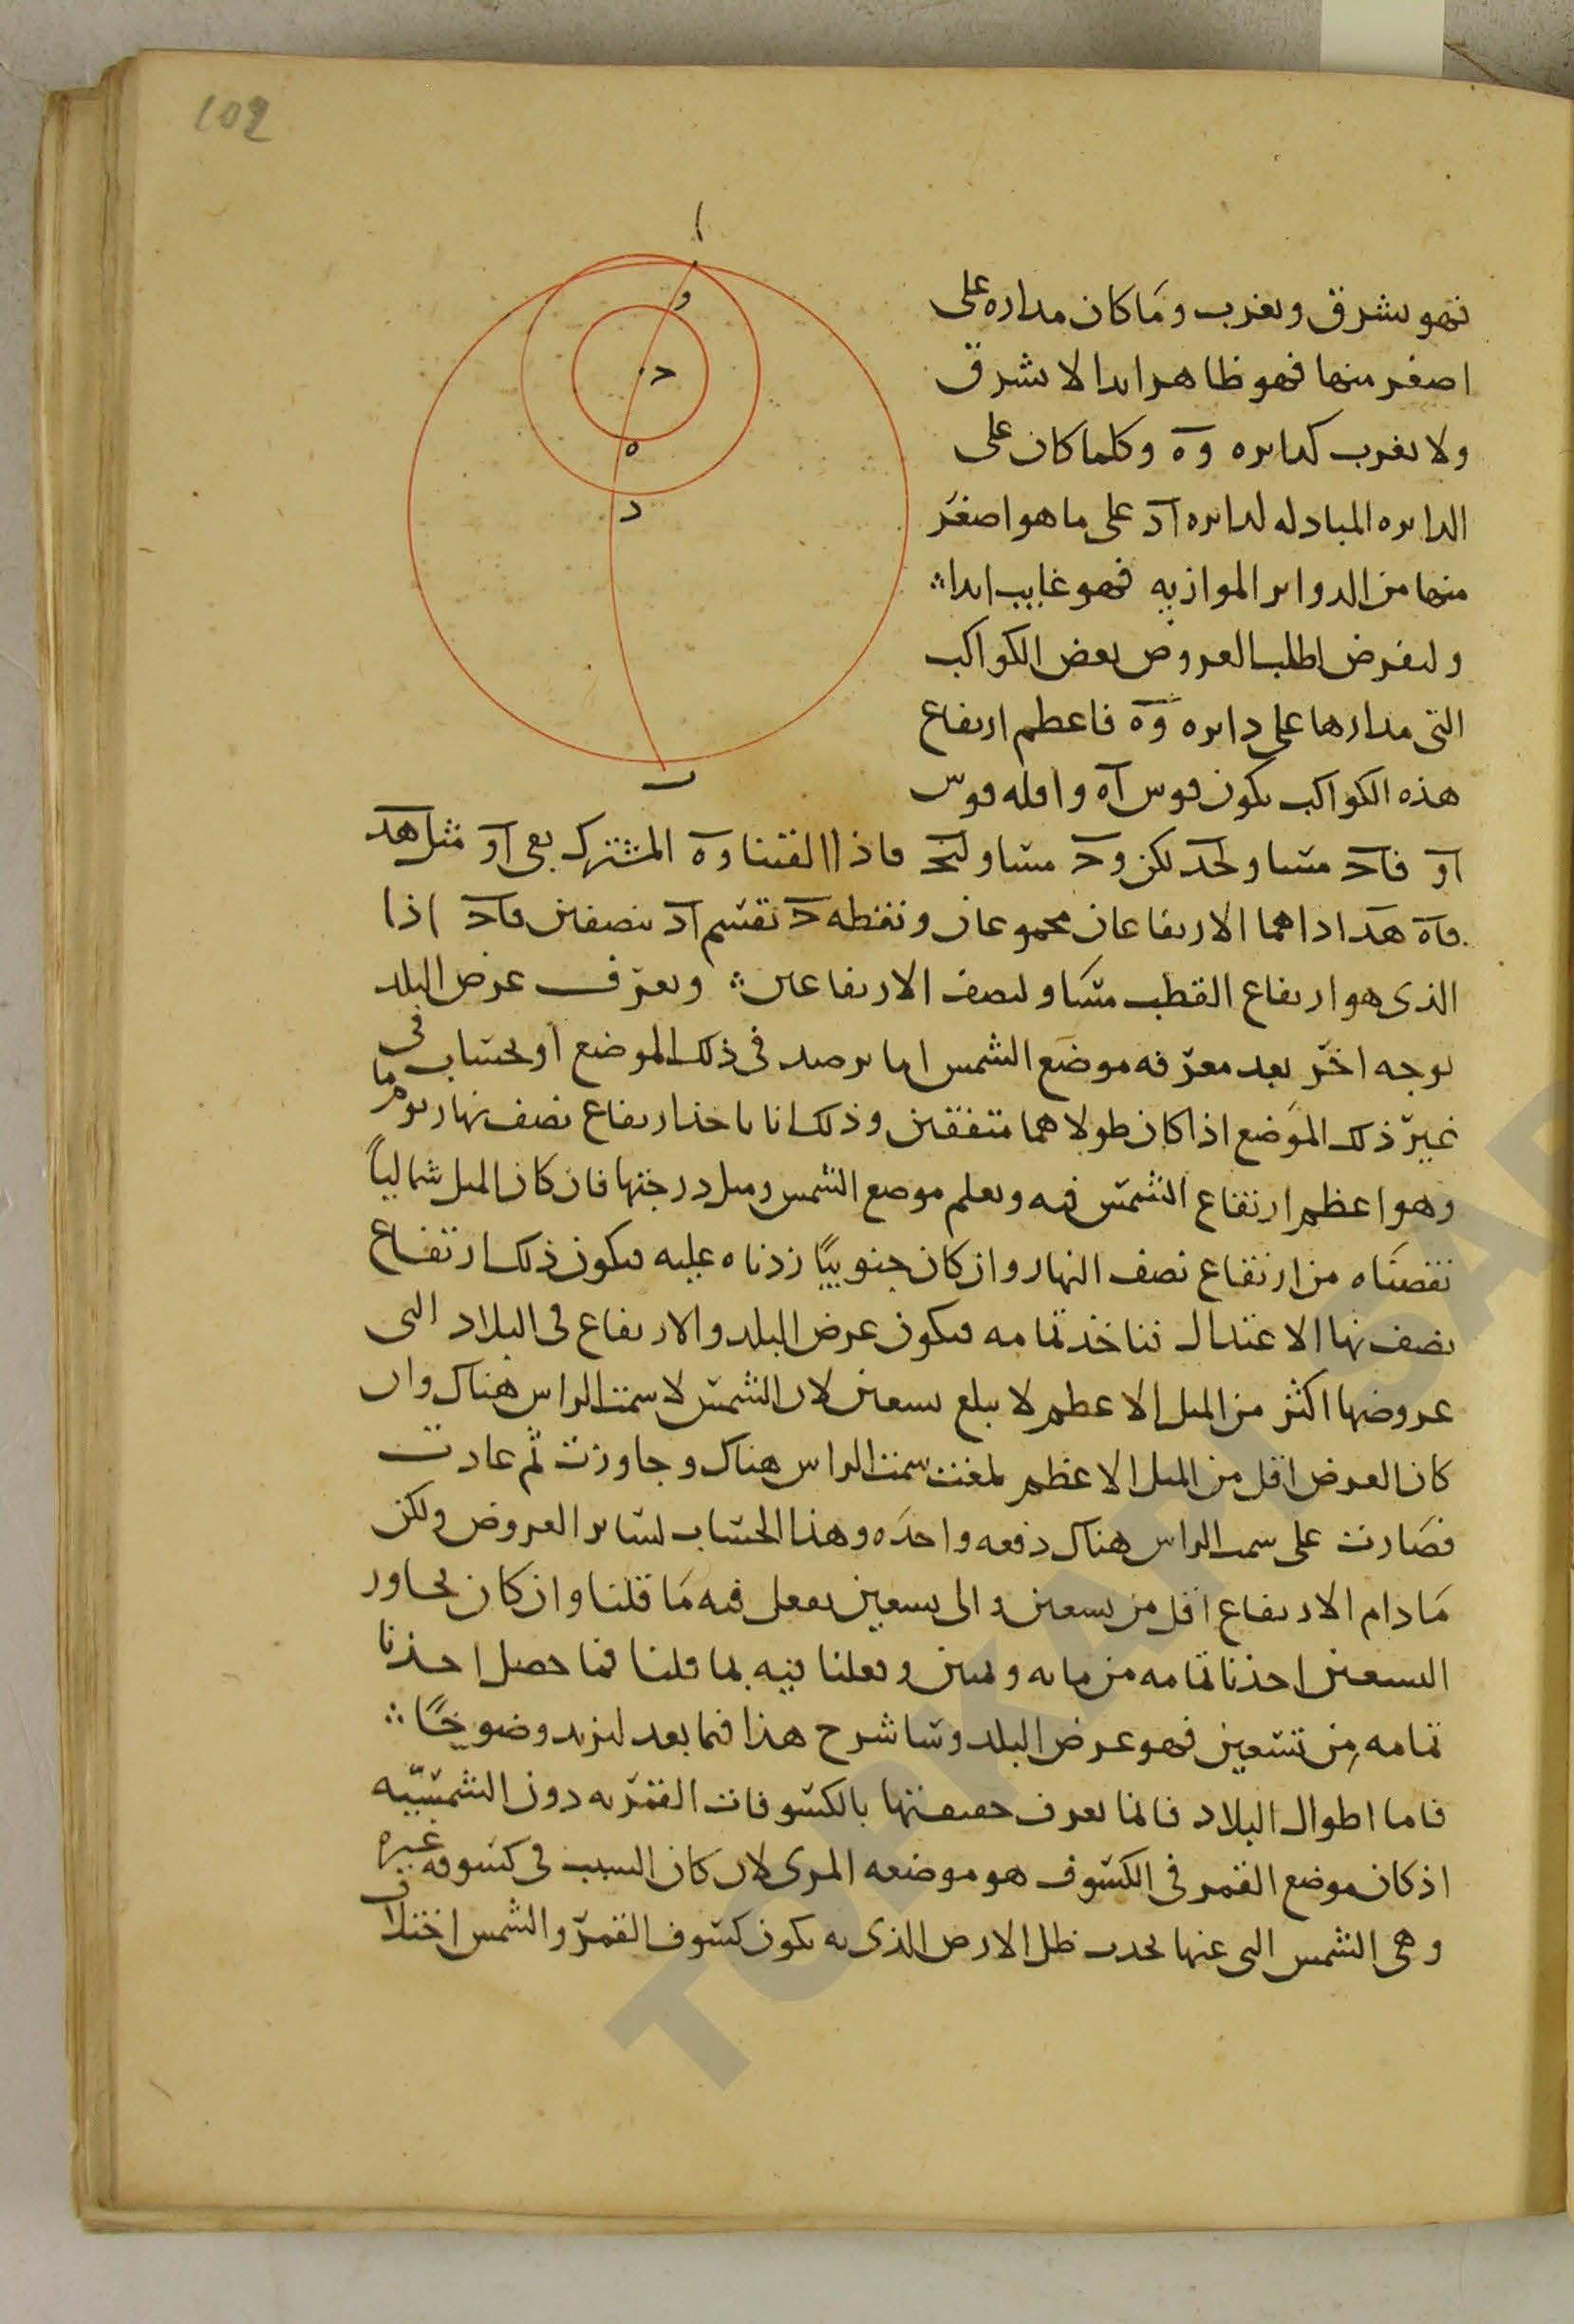 102
ا
و
ح
ه
د
ب
فهو يشرق ويغرب وما كان مداره على
اصغر منها فهو ظاهر ابدا لا يشرق
ولا يغرب كدايره وه وكلما كان على
الدايره المبادله لدايره اد على ما هو اصغر
منها من الدواير الموازيه فهو غايب ابدا
ولنفرض لطلب العروض بعض الكواكب
التى مدارها على دايره وه فاعظم ارتفاع
هذه الكواكب يكون قوس اه واقله قوس
او فاح مساو لحد لكن وح مساو لحه فاذا القينا وه المشترك بقى او مثل هد
فاه هد اذا هما الارتفاعان مجموعان ونقطه ح تقسم اد بنصفين فاح اذا
الذى هو ارتفاع القطب مساو لنصف الارتفاعين ونعرف عرض البلد
بوجه اخر بعد معرفه موضع الشمس اما برصد فى ذلك الموضع او بحساب فى
غير ذلك الموضع اذا كان طولاهما متفقين وذلك انا ناخذ ارتفاع نصف نهار يوم ما
وهو اعظم ارتفاع الشمس فيه ونعلم موضع الشمس وميل درجتها فان كان الميل شماليا
نقصناه من ارتفاع نصف النهار وان كان جنوبيا زدناه عليه فيكون ذلك ارتفاع
نصف نهار الاعتدال فناخذ تمامه فيكون عرض البلد والارتفاع فى البلاد التى
عروضها اكثر من الميل الاعظم لا يبلغ تسعين لان الشمس لا سمت الراس هناك وان
كان العرض اقل من الميل الاعظم بلغت سمت الراس هناك وجاوزت ثم عادت
فصارت على سمت الراس هناك دفعه واحده وهذا الحساب لساير العروض ولكن
ما دام الارتفاع اقل من تسعين والى تسعين يفعل فيه ما قلنا وان كان يجاوز
التسعين اخذنا تمامه من مايه وثمنين وفعلنا فيه بما قلنا فما حصل اخذنا
تمامه من تسعين فهو عرض البلد وساشرح هذا فيما بعد ليزيد وضوحا
فاما اطوال البلاد فانما نعرف حقيقتها بالكسوفات القمريه دون الشمسيه
اذ كان موضع القمر فى الكسوف هو موضعه المرى لان كان السبب فى كسوفه غيره
وهى الشمس التى عنها يحدث ظل الارض الذى به يكون كسوف القمر والشمس اختلاف